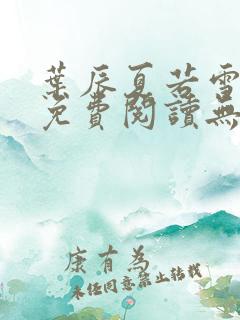 葉辰夏若雪
免費閱讀無
康有為
未经同意禁止转载